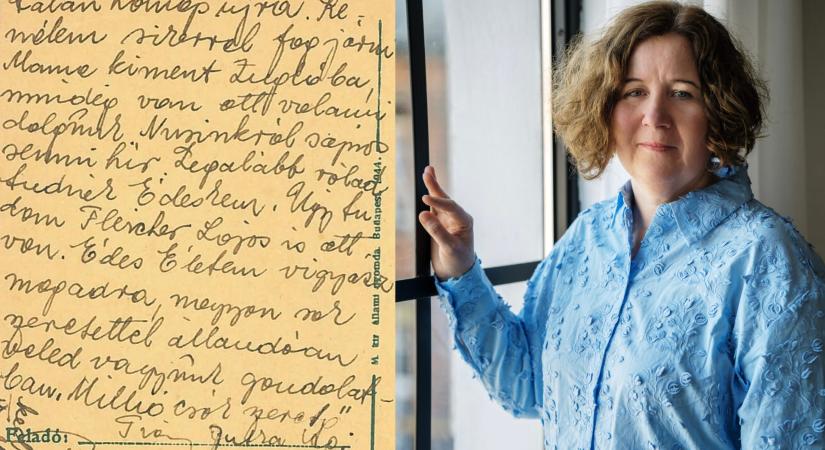 talán holnap újra. Re-
mélem sikerrel fog járni
Mama kiment Zuglóba,
mindég van ott valami
dolgunk Nusinkról sajnos
semmi hír Legalább rólad
tudnék Édesem. Úgy tu-
dom Fleicher Lajos is ott
van. Édes Életem vigyázz
magadra, nagyon sok
szeretettel állandóan
veled vagyunk gondolat-
ban. Millió csók
Feladó:
M. kir. Állami nyomda. Budapest, 1944.